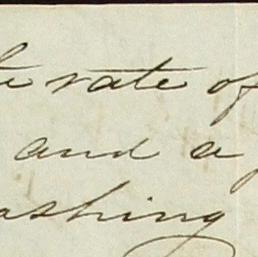 te rate of
and a
ashing